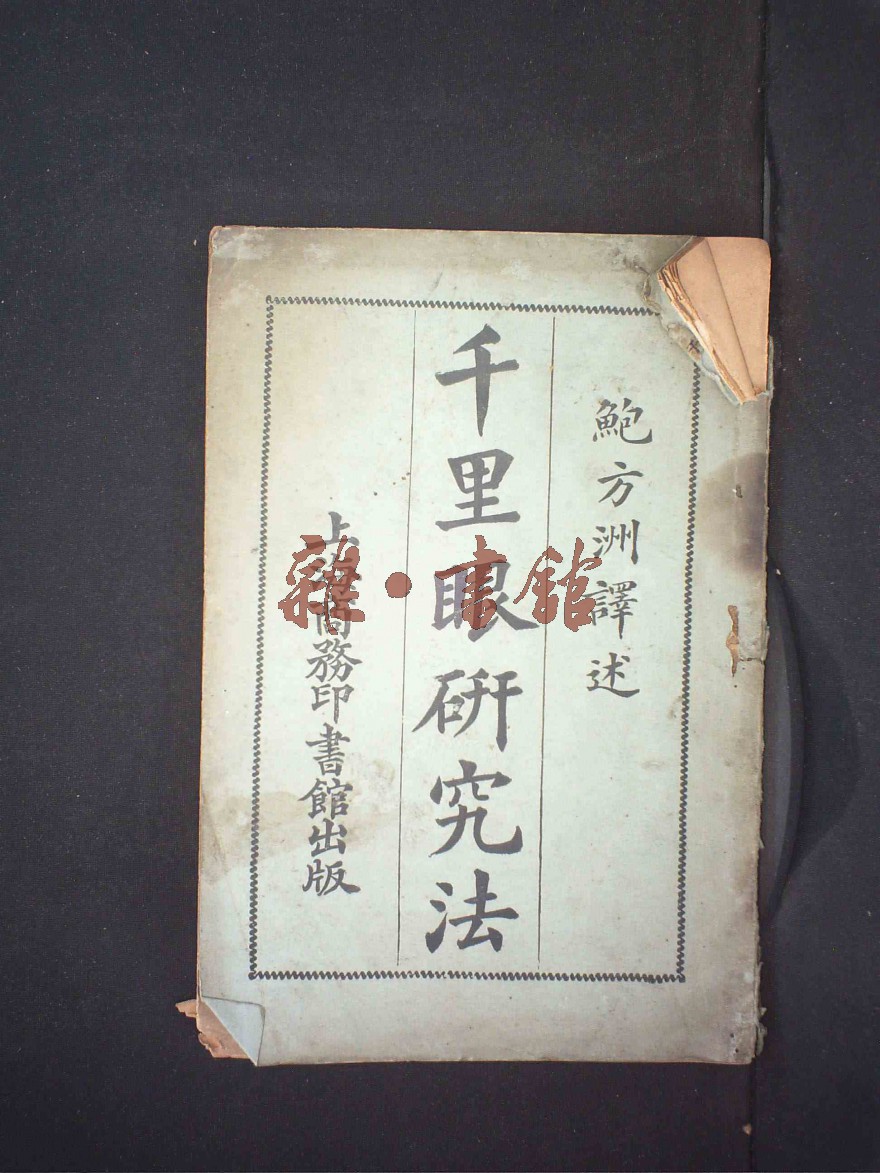 鮑方洲譯述
千里眼研究法
上海商務印書館出版
雜·書館